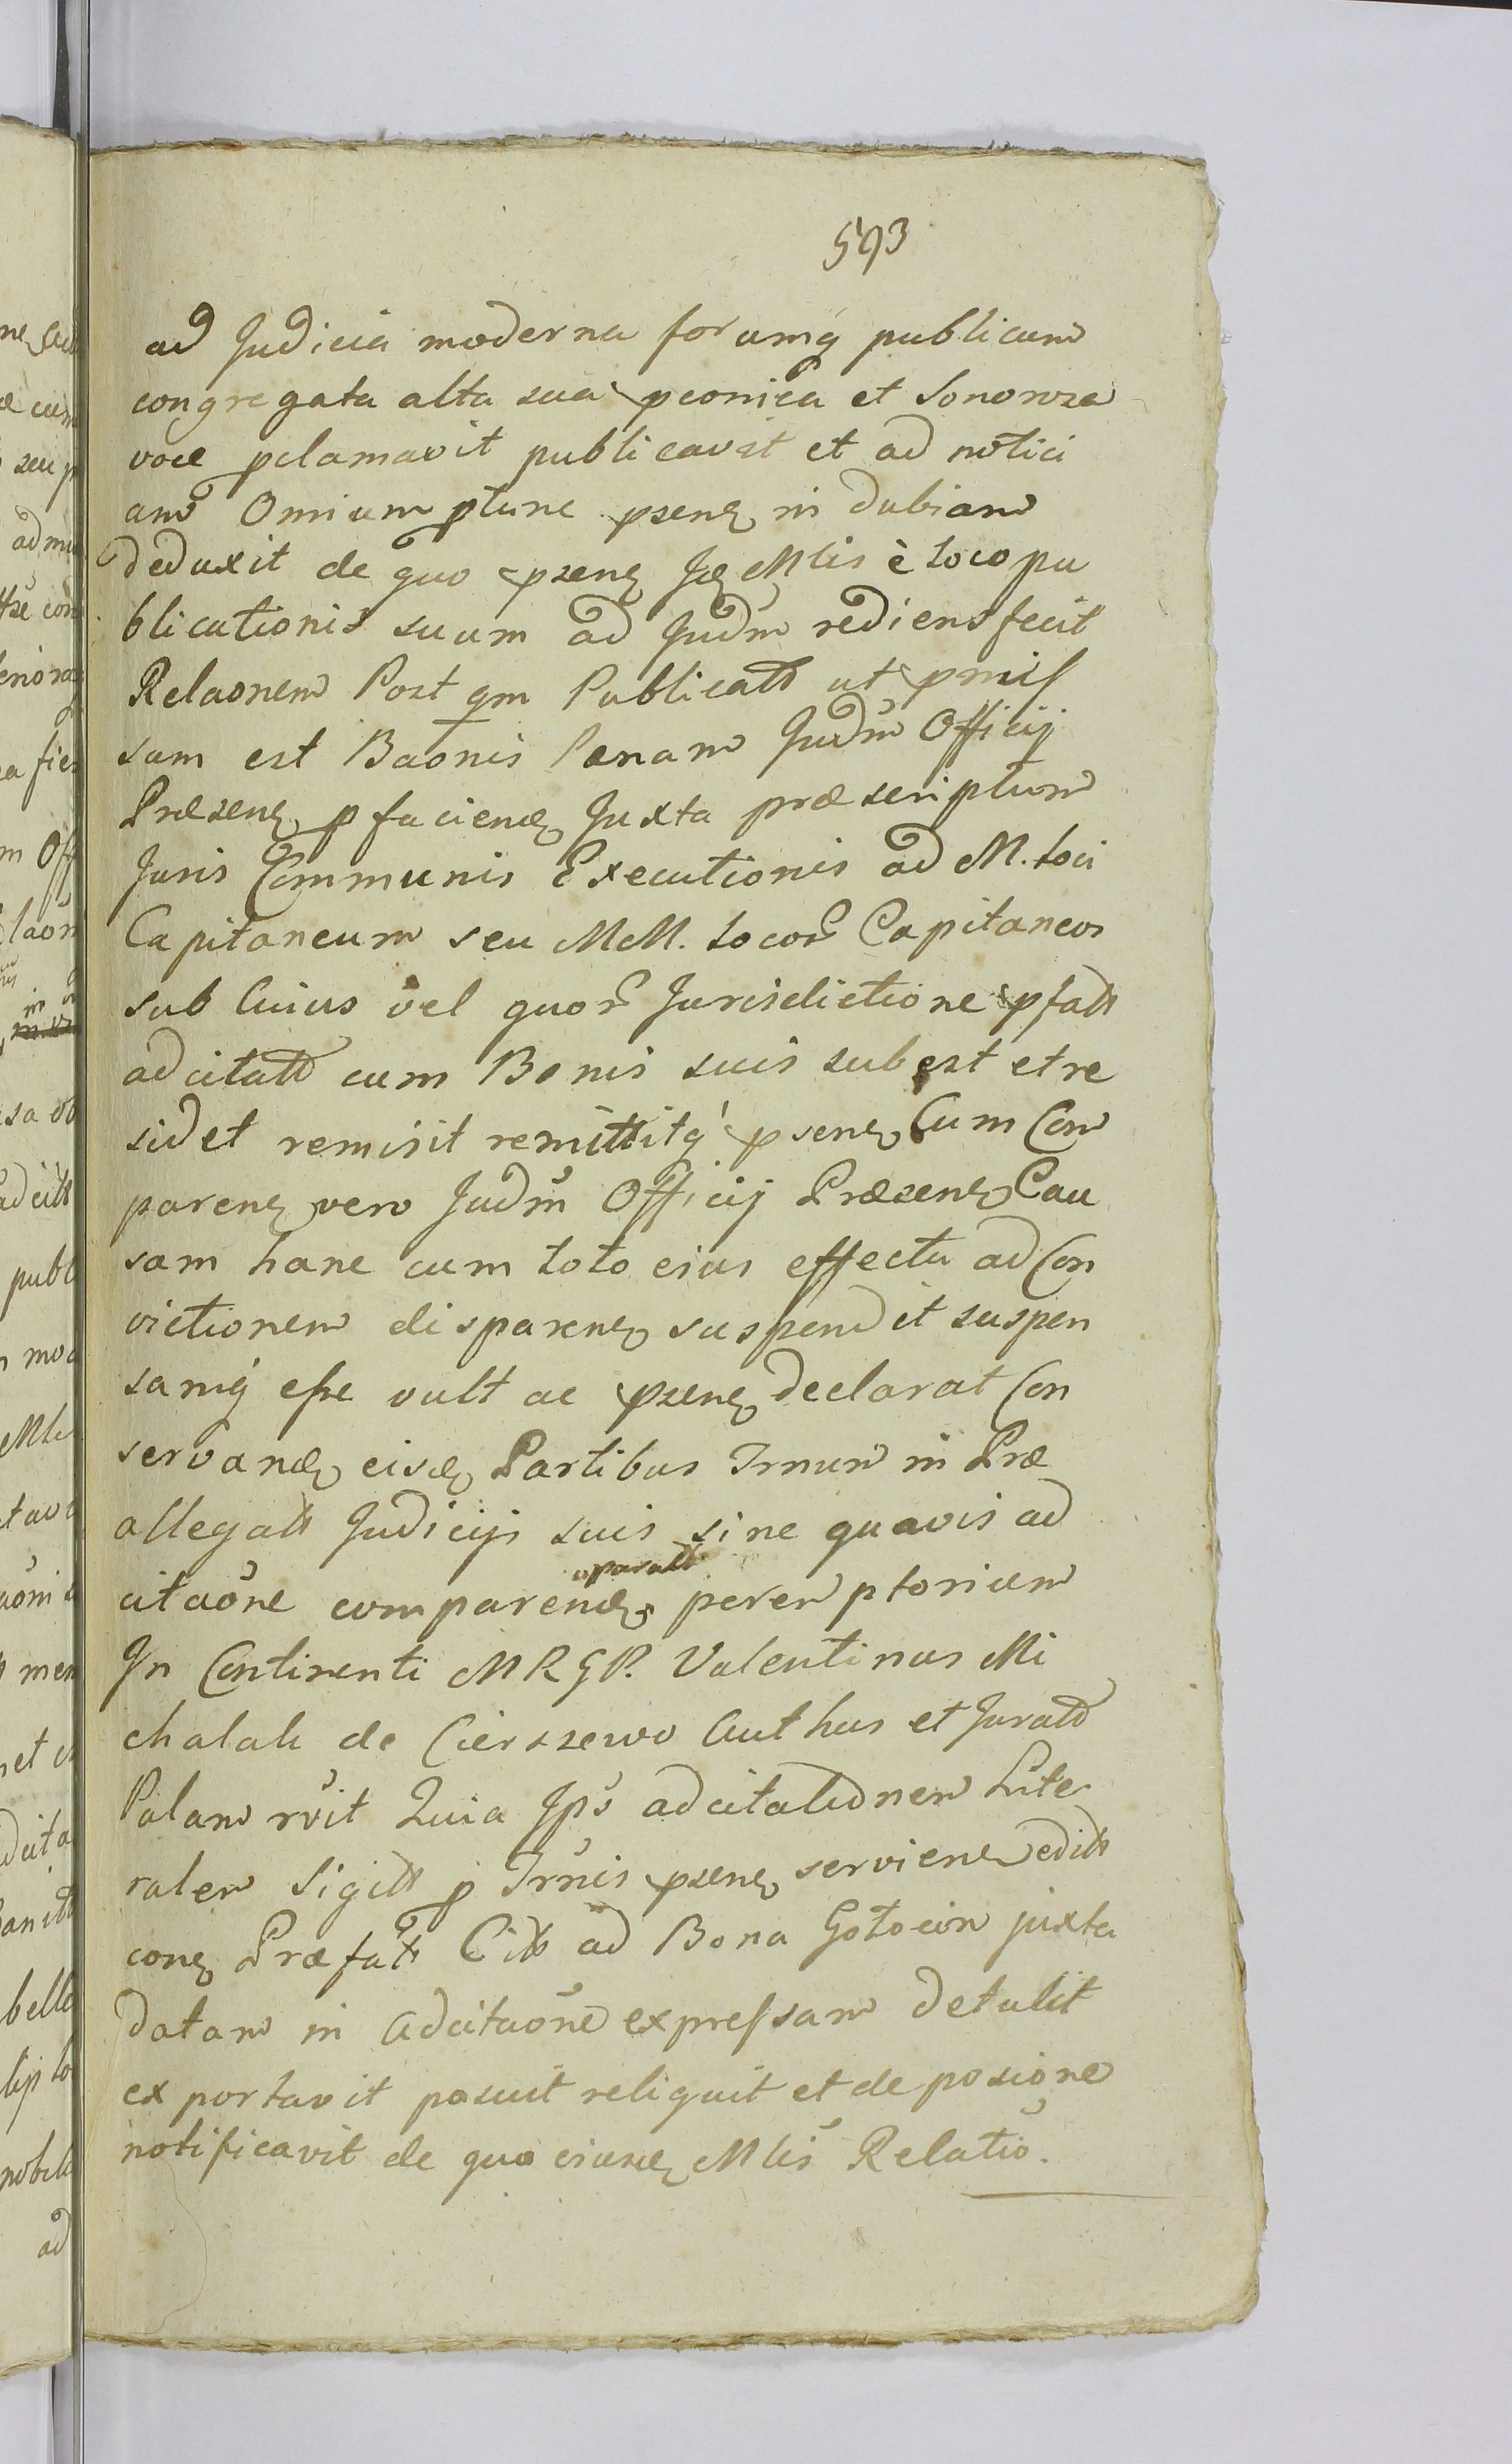 593
ad Judicia moderna forumq publicum
congregata alta sua pconica et Sonoroza
voce pclamavit publicavit et ad notici
am Omnium ptunc psen in dubiam
deduxit de quo psen Mlis è loco pu
blicationis suum ad Judm rediens fecit
Relaonem Post qm Publicatt ut pmis
sam est Baonis Penam Judm Officij
Præsen p faciend Juxta præscriptum
Juris Communis Executionis ad M. loci
Capitaneum seu MM. locor Capitaneos
sub Cuius vel quor Jurisdictione pfatt
adcitatt cum Bonis suis subest et re
sidet remisit remittitq psen Cum Com
paren vero Judm Officij Præsen Cau
sam hanc cum toto eius effectu ad Con
victionem disparen suspendit suspen
samq esse vult ac psen declarat Con
servand eisd Partibus Trnum in Præ
allegatt Judicijs suis sine quavis ad
citaone comparend paratt peremptorium
In Continenti MRGP. Valentinus Mi
chalak de Cierszewo Authus et Juratt
Palam rvit Quia Ips adcitationem Lite
ralem Sigitt p Trnis psen servien editt
con Præfatt Citt ad Bona Gotocin juxta
datam in Adcitaone expressam detulit
exportavit posuit reliquit et de posione
notificavit de quo eiusd Mlis Relatio.